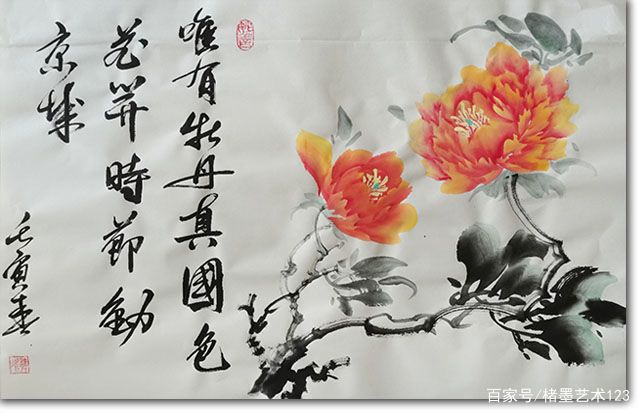 唯有牡丹真國色
花開時節動
京城
壬寅春
百家号/楮墨艺术123